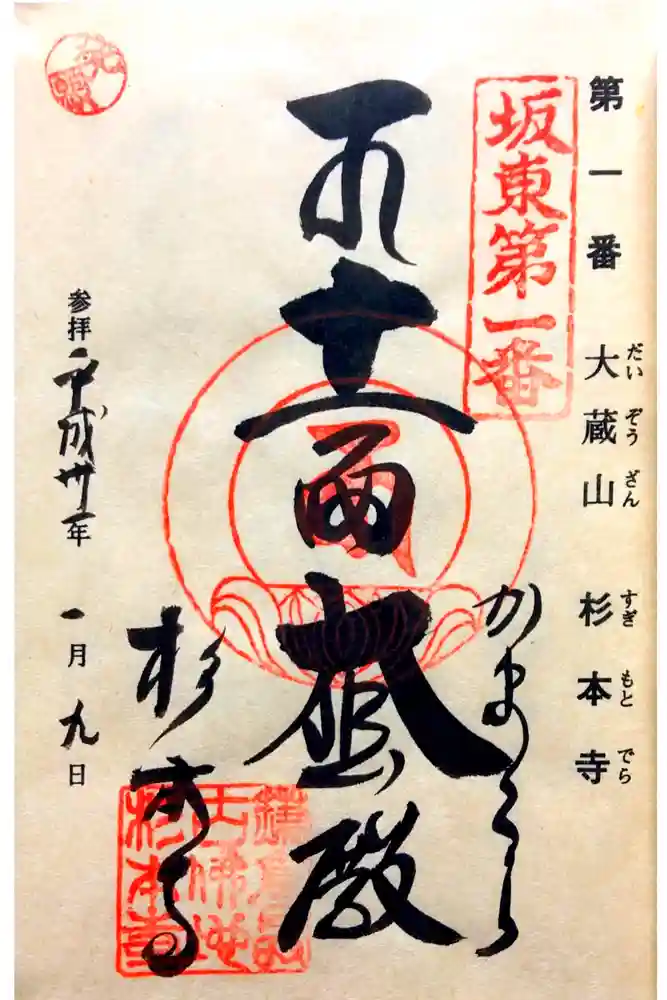 第一番 大蔵山 杉本寺
だいぞうざん すぎもとでら
坂東第一番
かまくら
十一面大悲殿
杉本寺
杉本寺
参拝 平成卅一年 一月九日